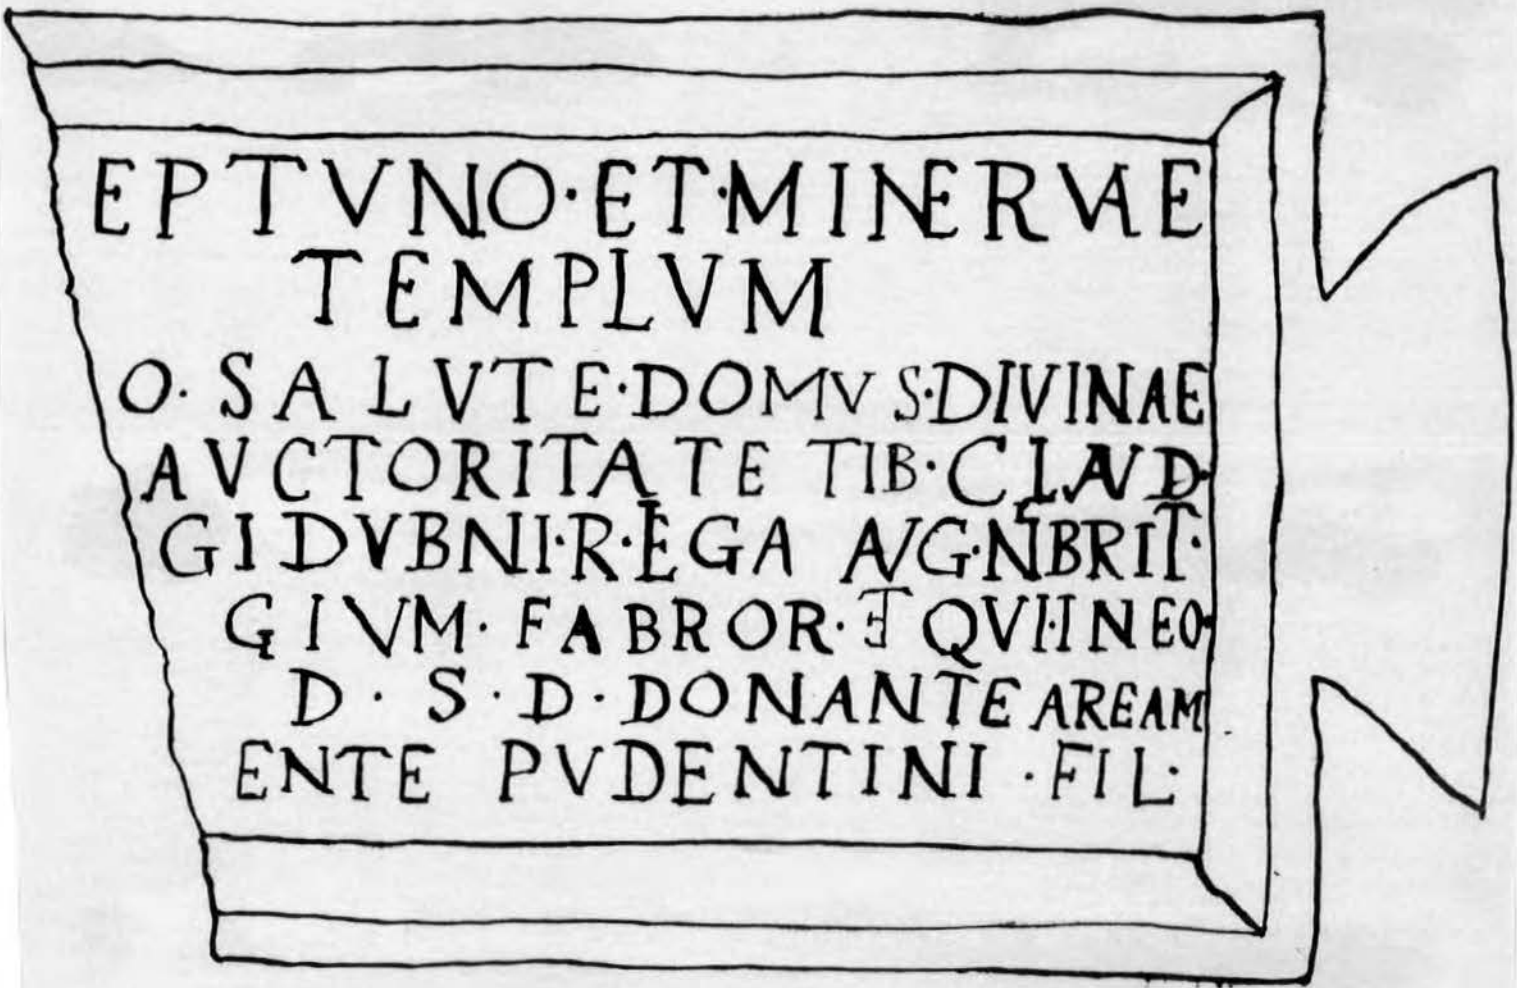 EPTVNO·ET·MINERVAE
TEMPLVM
O·SALVTE·DOMVS·DIVINAE
AVCTORITATE TIB·CLAVD·
GIDVBNI·R·EGA AVG·N·BRIT·
GIVM·FABROR·ET QVI·IN EO·
D·S·D·DONANTE AREAM
ENTE PVDENTINI·FIL·